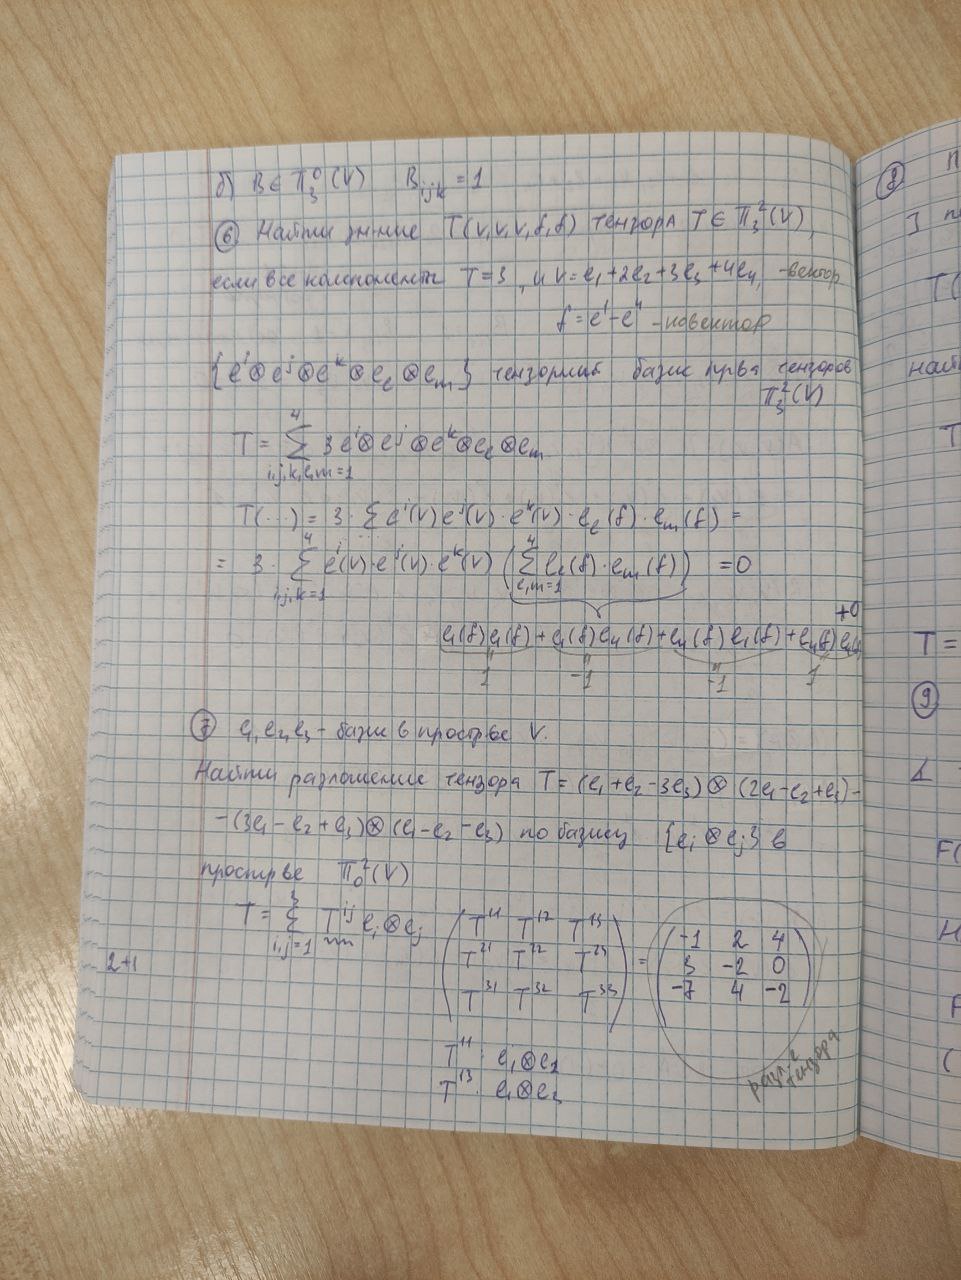 б) B ∈ Π₃⁰(V) B_ijk = 1
⑥ Найти зн-ние T(v,v,v,f,f) тензора T ∈ Π₃²(V),
если все компоненты T=3, и v=e₁+2e₂+3e₃+4e₄, -вектор
f = e¹-e⁴ -ковектор
{eⁱ⊗eʲ⊗eᵏ⊗e_l⊗e_m} тензорный базис пр-ва тензоров
Π₃²(V)
T = ∑⁴_{i,j,k,l,m=1} 3 eⁱ⊗eʲ⊗eᵏ⊗e_l⊗e_m
T(...) = 3·∑ eⁱ(v) eʲ(v)·eᵏ(v)·e_l(f)·e_m(f) =
= 3·∑⁴_{i,j,k=1} eⁱ(v)·eʲ(v)·eᵏ(v) (∑⁴_{l,m=1} e_l(f)·e_m(f)) =0
+0
e₁(f)e₁(f) + e₁(f)e₄(f) + e₄(f)e₁(f) + e₄(f)e₄(f)
1 -1 -1 1
⑦ e₁,e₂,e₃ - базис в простр-ве V.
Найти разложение тензора T = (e₁+e₂-3e₃)⊗(2e₁-e₂+e₃)-
-(3e₁-e₂+e₃)⊗(e₁-e₂-e₃) по базису {e_i⊗e_j} в
простр-ве Π₀²(V)
T = ∑³_{i,j=1} Tⁱʲ e_i⊗e_j (T¹¹ T¹² T¹³
T²¹ T²² T²³
T³¹ T³² T³³) = (-1 2 4
3 -2 0
-7 4 -2)
2+1
T¹¹: e₁⊗e₂
T¹³: e₁⊗e₃
разл-е
тензора
⑧
T(
T
T =
⑨
F(
(